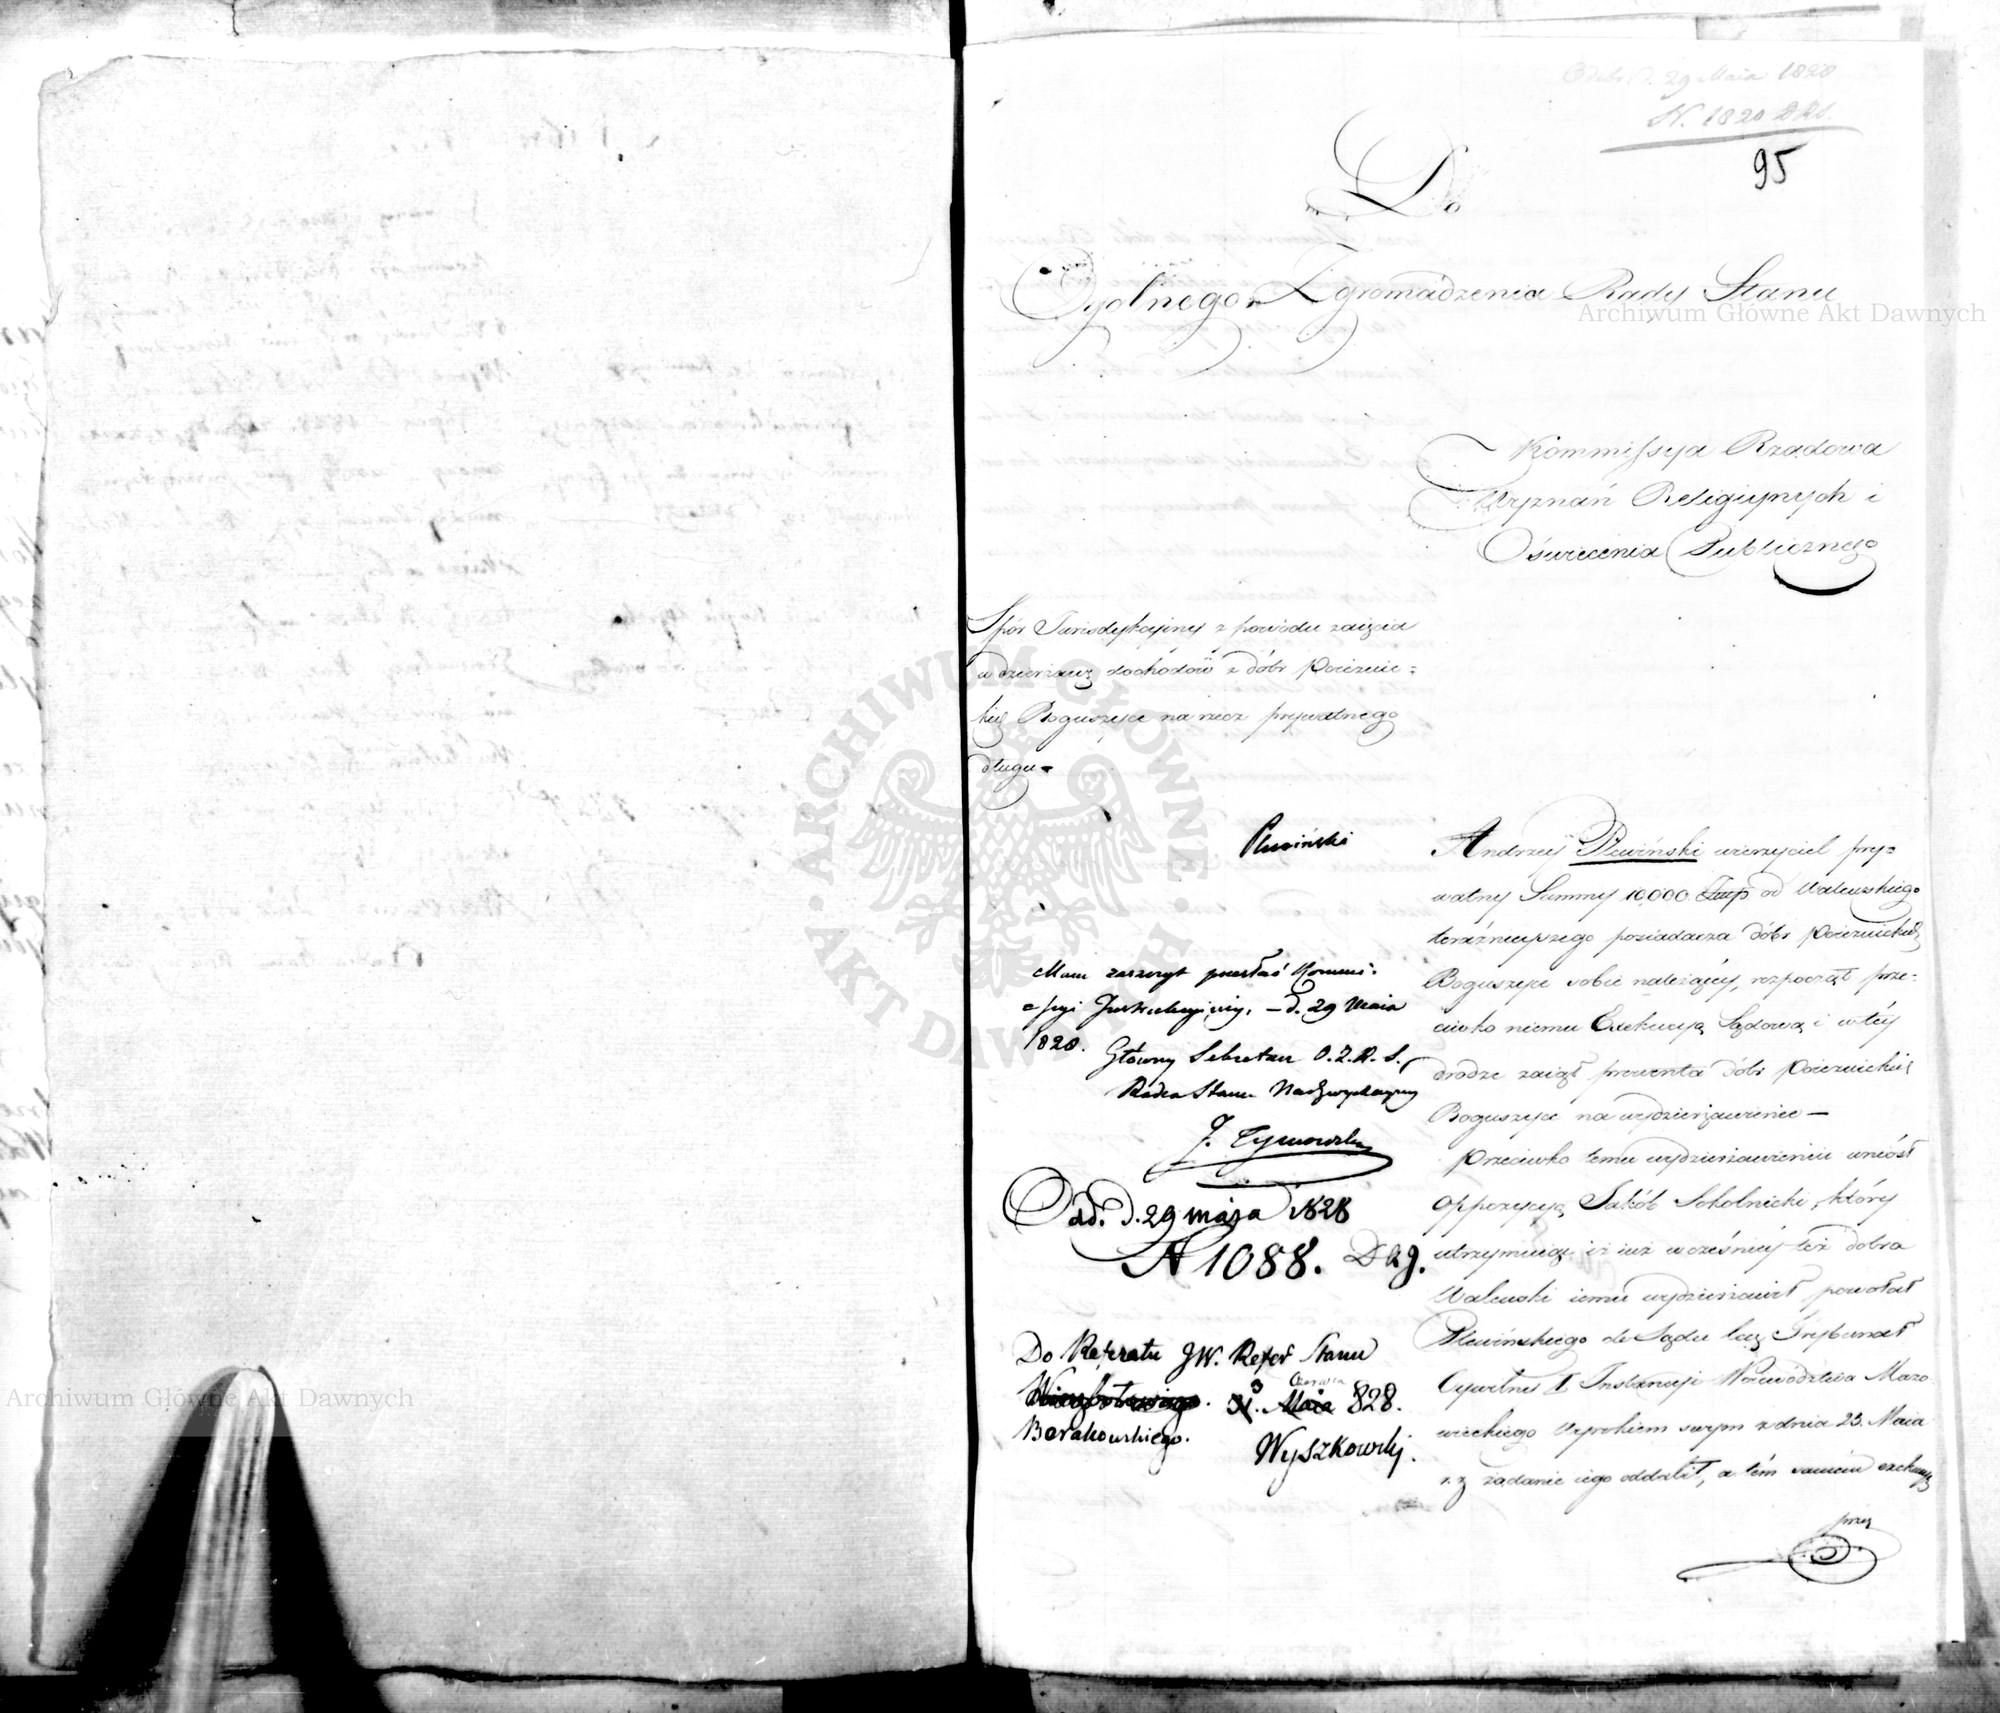 d. 29 Maia 1828
N. 1820
95
Do
Ogolnego Zgromadzenia Rady Stanu
Kommissya Rządowa
Wyznań Religiynych i
Oświecenia Publicznego
Spór Jurisdykcyiny z powodu zaięcia
w dzierżawę dochodów z dóbr Poiezuic=
kich Boguszyce na rzecz prywatnego
długu
Plewiński
Andrzey Plewiński wierzyciel pry=
watny Summy 10,000 od Walewskiego
teraźnieyszego posiadacza dóbr Poiezuickich
Boguszyce sobie należącey, rozpoczął prze=
ciwko niemu Exekucyą Sądową i w tey
drodze zaiął prowenta dóbr Poiezuickich
Boguszyce na wydzierżawienie —
Przeciwko temu wydzierżawieniu wniósł
oppozycyą Jakób Sokolnicki, który
utrzymuiąc iż iuż wcześniey też dobra
Walewski iemu wydzierżawił powołał
Plewińskiego do Sądu lecz Trybunał
Cywilny I Instancyi Woiewództwa Mazo
wieckiego Wyrokiem swym z dnia 23. Maia
r. z żądanie iego oddalił, a tém samém exekucyą
przez
Mam zaszczyt przesłać Kommi=
=ssyi — d. 29 Maia
1828.
Główny Sekretarz O. Z. R. S.
Radca Stanu Nadzwyczayny
J. Tymowski
Odd. d. 29 maja 1828
N 1088.
Do Referatu JW. Refer Stanu
3 Czerwca
31. Maia 828.
Borakowskiego.
Wyszkowski.
Archiwum Główne Akt Dawnych
Archiwum Główne Akt Dawnych
ARCHIWUM GŁÓWNE AKT DAWNYCH